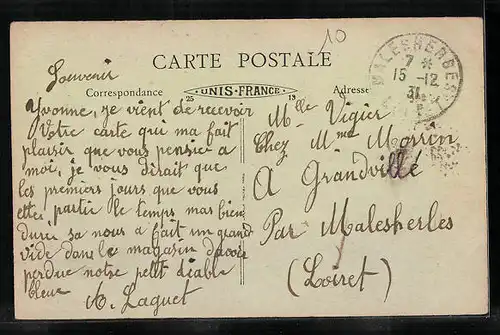 10
CARTE POSTALE
MALESHERBES
7 *
15 -12
31
Souvenir
Correspondance
25
UNIS-FRANCE
13
Adresse
Yvonne, je vient de recevoir
Votre carte qui ma fait
plaisir que vous pensie a
moi, je vous dirait que
les premiers jours que vous
ette, partie le temps mas bien
duree sa nous a fait un grand
vide dans le magasin davoir
perdue notre petit diable
bleue
A. Laguet
Mlle Vigier
Chez Mme
A Grandville
Par Malesherbes
(Loiret)